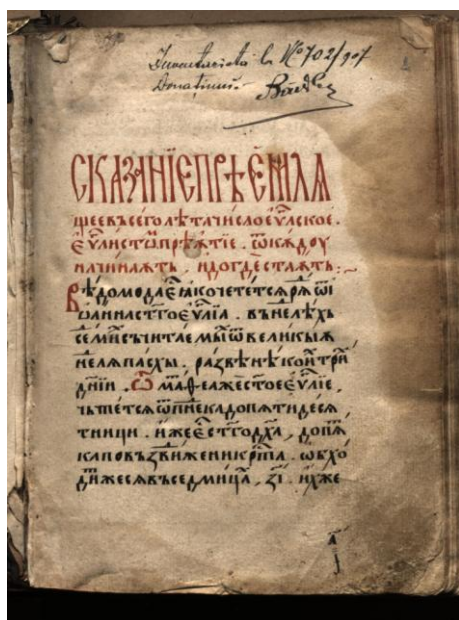 Inventariată la Nº 702/907
Donațiune.
СКАЗАНЇЕ ПРѢЕМЛѦ
щеевъсеголѣтачислоеѵ҃лское.
еѵ҃листѡ҃прїѧтїе. ѿкѫдоу
начинаѫть. идогдестаѫть:~
Вѣдомодаестьꙗкочететсѧрѧ
ѡаннастгоеѵ҃лїа. вънелѣхь
семи҃съчитаемыⷯѿвеликыѧ
нелѧпасхы. развѣнѣкоиⷯтри
днїи. Ѿмаѳеажестоееѵ҃лїе,
чьтетсѧѿпнекадопѧтидесѧ
тници. ижеестстгодх҃а, допѧ
каповъзⸯвижениикрⷭта. ѡбхо
диⷤжесѧвъседмица, з҃і. ихже